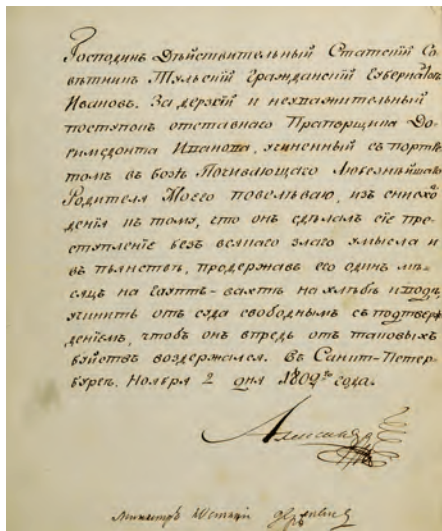 Господинъ Дѣйствительный Статскій Со
вѣтникъ Тульскій Гражданскій Губернаторъ
Ивановъ. За дерзкій и неуважительный
поступокъ отставнаго Прапорщика До-
римедонта Иванова, учиненный съ портре
томъ въ Бозѣ Почивающаго Любезнѣйшаго
Родителя Моего повелѣваю, изъ снисхо
жденія къ тому, что онъ сдѣлалъ сіе пре-
ступленіе безъ всякаго злаго умысла и
въ пьянствѣ, продержавъ его одинъ мѣ-
сяцъ на гауптъ-вахтѣ на хлѣбѣ и водѣ,
учинить отъ суда свободнымъ съ подтверж
деніемъ, чтобъ онъ впредь отъ таковыхъ
буйствъ воздержался. Въ Санкт-Петер-
бургѣ. Ноября 2 дня 1802го года.
Александръ
Министръ Юстиціи Державинъ